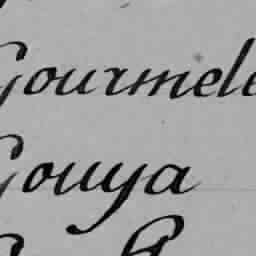 Gourmele
Gouya